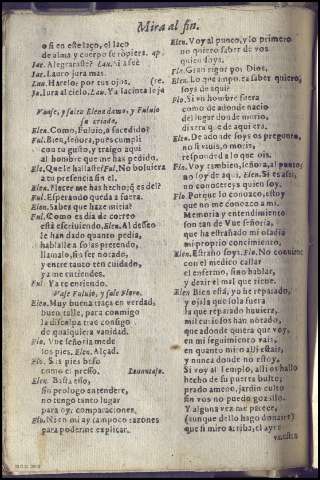 Mira al fin.
o si en este laço, el laço
de alma y cuerpo se rōpiera. ap.
Jac. Alegraraste? Lau. Si a fee
Jac. Lauro jura mas.
Lau. Harelo: por tus ojos. (se.
Ja. Iura al cielo. Lau. Ya Iacinta leja
Vanse, y salen Elena dama, y Fuluio
su criado.
Elen. Como, Fuluio, a sucedido?
Ful. Bien, señora, pues cumpli
con tu gusto, y traigo aqui
al hombre que me has pedido.
Ele. Que le hallaste? Ful. No boluiera
a tu presencia sin el.
Elen. Plazer me has hecho; q̄ es del?
Ful. Esperando queda a fuera.
Elen. Sabes que haze micia?
Ful. Como es dia de correo
està escriuiendo. Elen. Al desseo
le han dado quanto pedia,
hablalle a solas pretendo,
llamalo, sin ser notado,
y entre tanto ten cuidado,
ya me entiendes.
Ful. Ya te entiendo.
Vase Fuluio, y sale Floro.
Elen. Muy buena traça en verdad,
buen talle, para conmigo
la disculpa trae consigo
de qualquiera vanidad.
Flo. Vue señoria me dè
los pies. Elen. Alçad.
Flo. Sis pies beso
como el presso. Leuantase.
Elen. Basta esso,
sin prologo entendere,
no tengo tanto lugar
para oyr comparaciones.
Flo. Ni en mi ay tampoco razones
para poderme explicar.
Elen. Voy al punto, y lo primero
no quiero saber de vos
quien soys.
Flo. Gran rigor por Dios.
Elen. Lo que importa saber quiero,
soys de aqui?
Flo. Si vn hombre fuera
como de adonde nacio
del lugar donde murio,
dixera que de aqui era.
Elen. De adonde soys os pregunto,
no si viuis, o moris,
responded a lo que ois.
Flo. Voy tambien, señora, al punto;
no soy de aqui. Elen. Si es assi,
no conocereys quien soy.
Flo. Porque lo conozco, estoy
que no me conozco a mi.
Memoria y entendimiento
son tan de Vue señoria,
que ha estrañado mi osadia
mi proprio conocimiento.
Elen. Estraño soys. Flo. No conuiene
con el medico callar
el enfermo, sino hablar,
y dezir el mal que tiene.
Elen Bien està, yo he reparado,
y ojala que sola fuera
la que reparado huuiera,
mil curiosos han notado,
que adonde quiera que voy,
en mi seguimiento vais,
en quanto miro alli estais,
y nunca donde no estoy.
Si voy al Templo, alli os hallo
hecho de su puerta bulto;
prado ameno, jardin culto
sin vos no puedo gozallo.
Y alguna vez me parece,
(aunque dello hago donaire)
que si miro arriba, el ayre